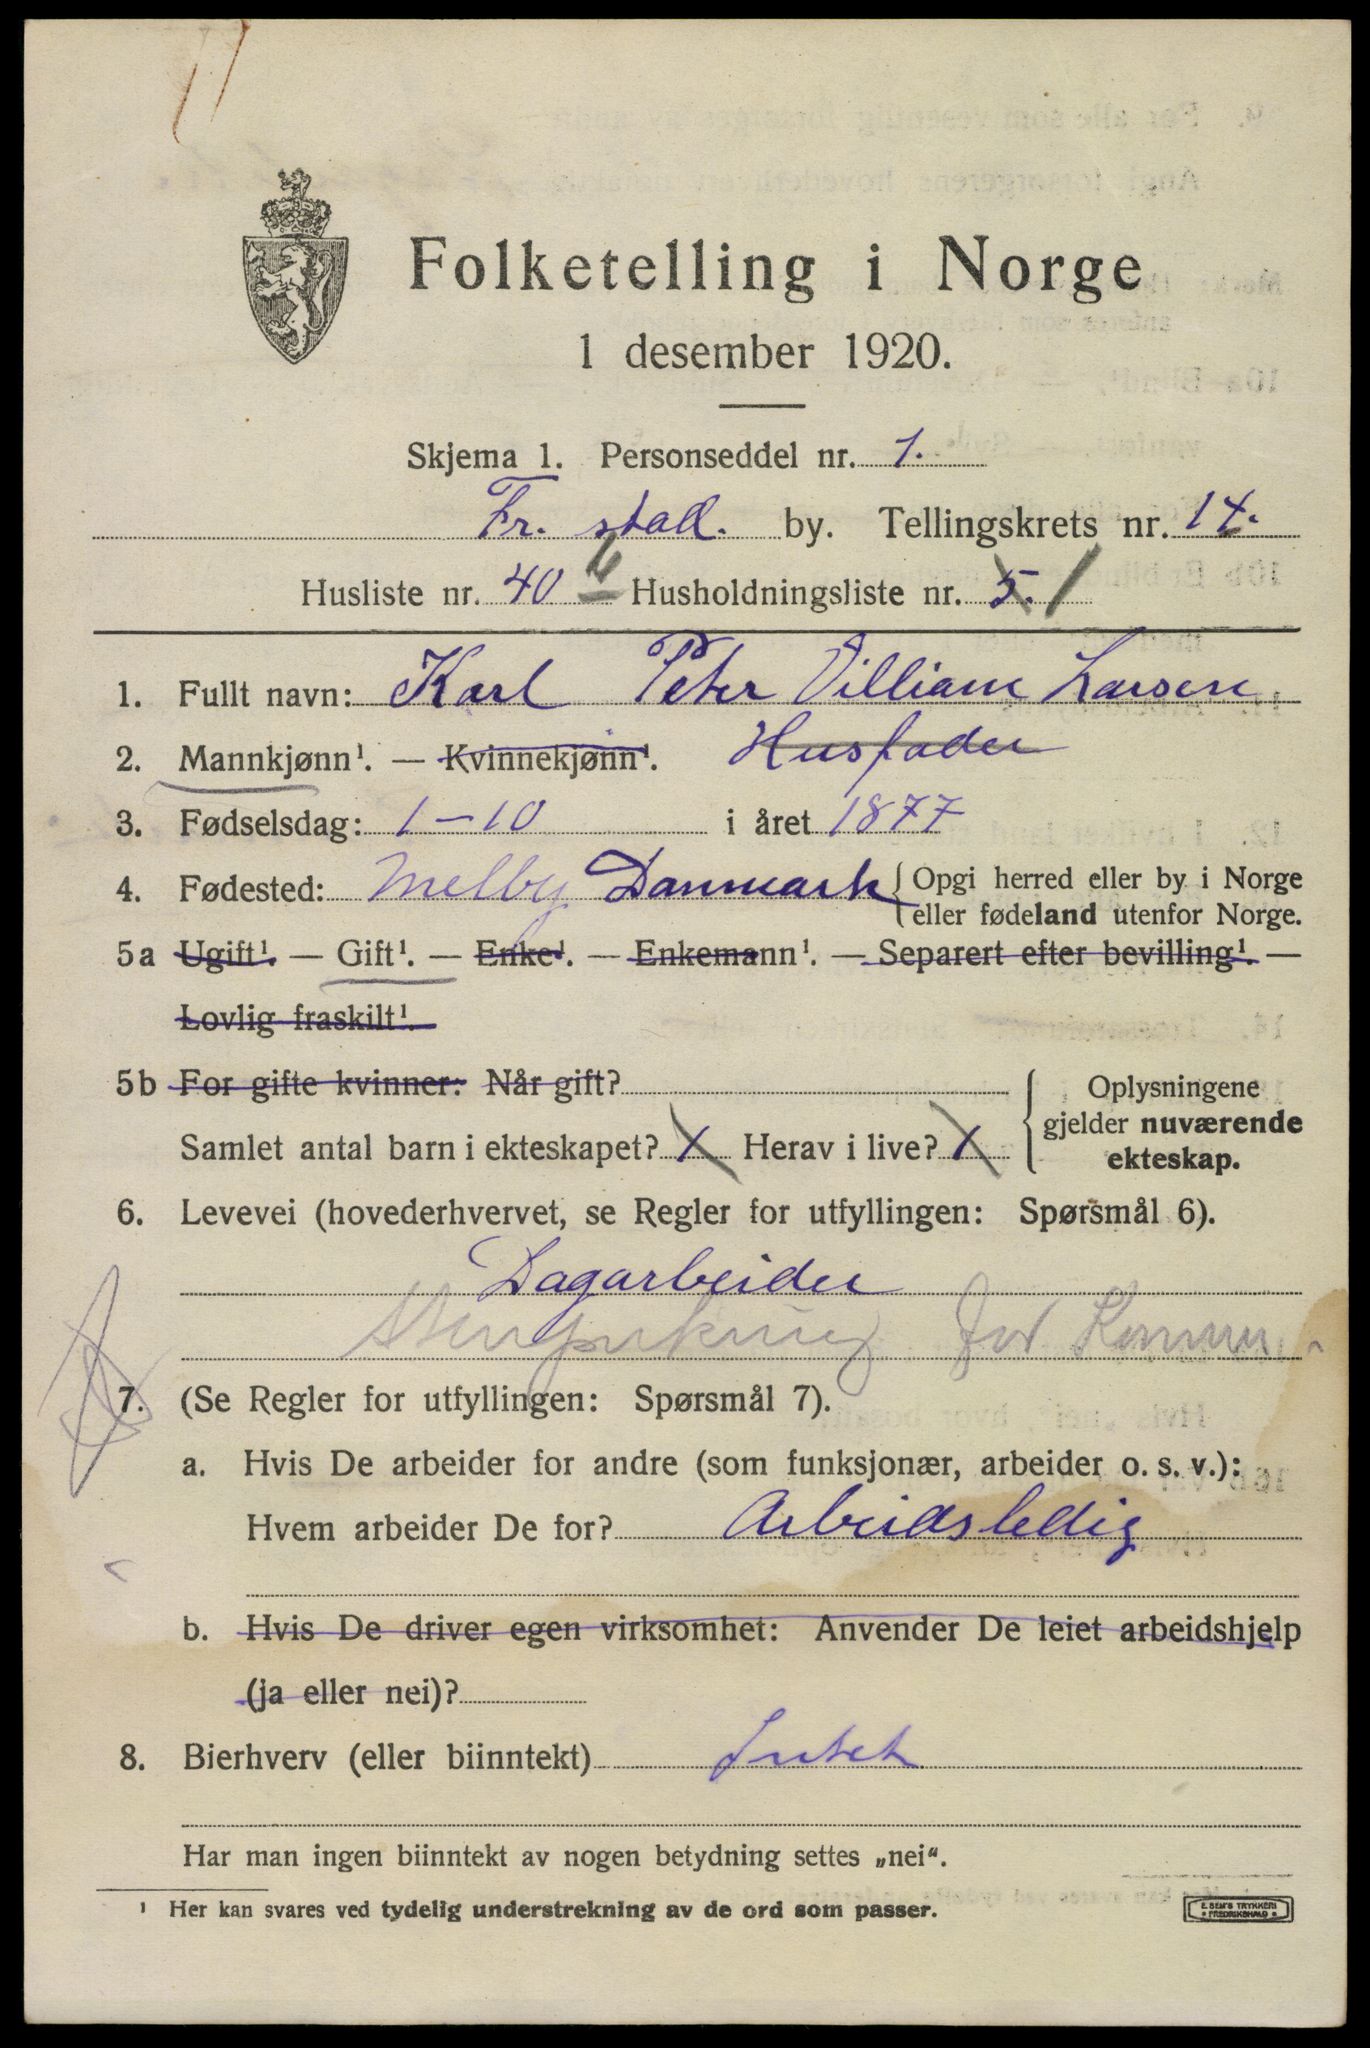 Folketelling i Norge
1 desember 1920.
Skjema 1. Personseddel nr. 1.
Fr. stad. by. Tellingskrets nr. 14.
Husliste nr. 40 b Husholdningsliste nr. 5. 1
1. Fullt navn: Karl Peter Villiam Larsen
2. Mannkjønn¹. — Kvinnekjønn¹. Husfader
3. Fødselsdag: 1-10 i året 1877
4. Fødested: Melby Danmark { Opgi herred eller by i Norge
eller fødeland utenfor Norge.
5a Ugift¹. — Gift¹. — Enke¹. — Enkemann¹. — Separert efter bevilling¹. —
Lovlig fraskilt¹.
5b For gifte kvinner: Når gift?
Samlet antal barn i ekteskapet? 1 Herav i live? 1
{ Oplysningene
gjelder nuværende
ekteskap.
6. Levevei (hovederhvervet, se Regler for utfyllingen: Spørsmål 6).
Dagarbeider
for Kommun
7. (Se Regler for utfyllingen: Spørsmål 7).
a. Hvis De arbeider for andre (som funksjonær, arbeider o. s. v.):
Hvem arbeider De for? Arbeidsledig
b. Hvis De driver egen virksomhet: Anvender De leiet arbeidshjelp
(ja eller nei)?
8. Bierhverv (eller biinntekt) Intet
Har man ingen biinntekt av nogen betydning settes „nei“.
¹ Her kan svares ved tydelig understrekning av de ord som passer.
E. SEM'S TRYKKERI
• FREDRIKSHALD •